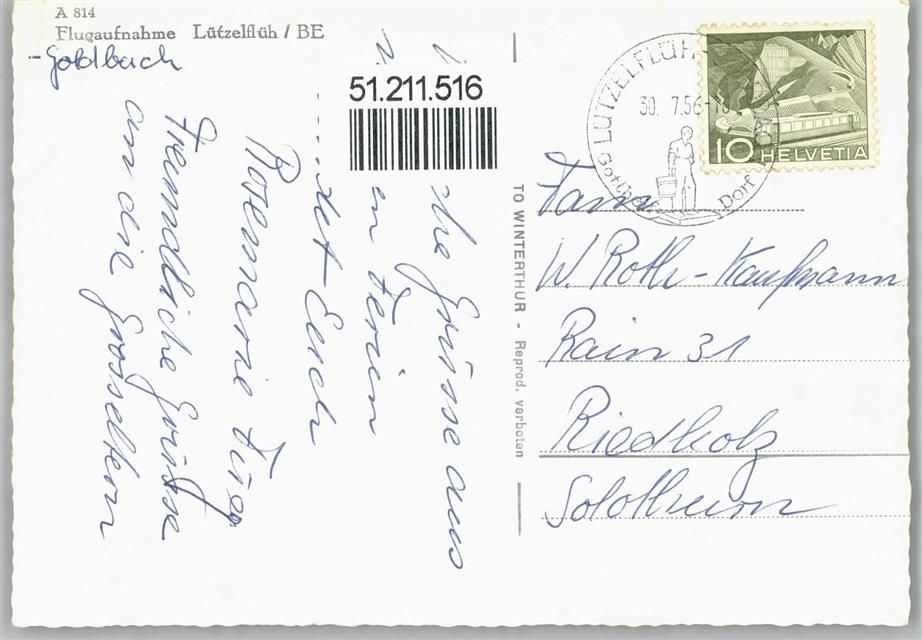 A 814
Flugaufnahme Lützelflüh / BE
-Goldbach
51.211.516
Grüsse aus
en Ferien
det Euch
Rosemarie
Freundliche Grüsse
an die Grosseltern
TO WINTERTHUR - Reprod. verboten
LÜTZELFLÜH
30. 7.56-18
Dorf
10 HELVETIA
Fam.
W. Roth-Kaufmann
Rain 31
Riedholz
Solothurn